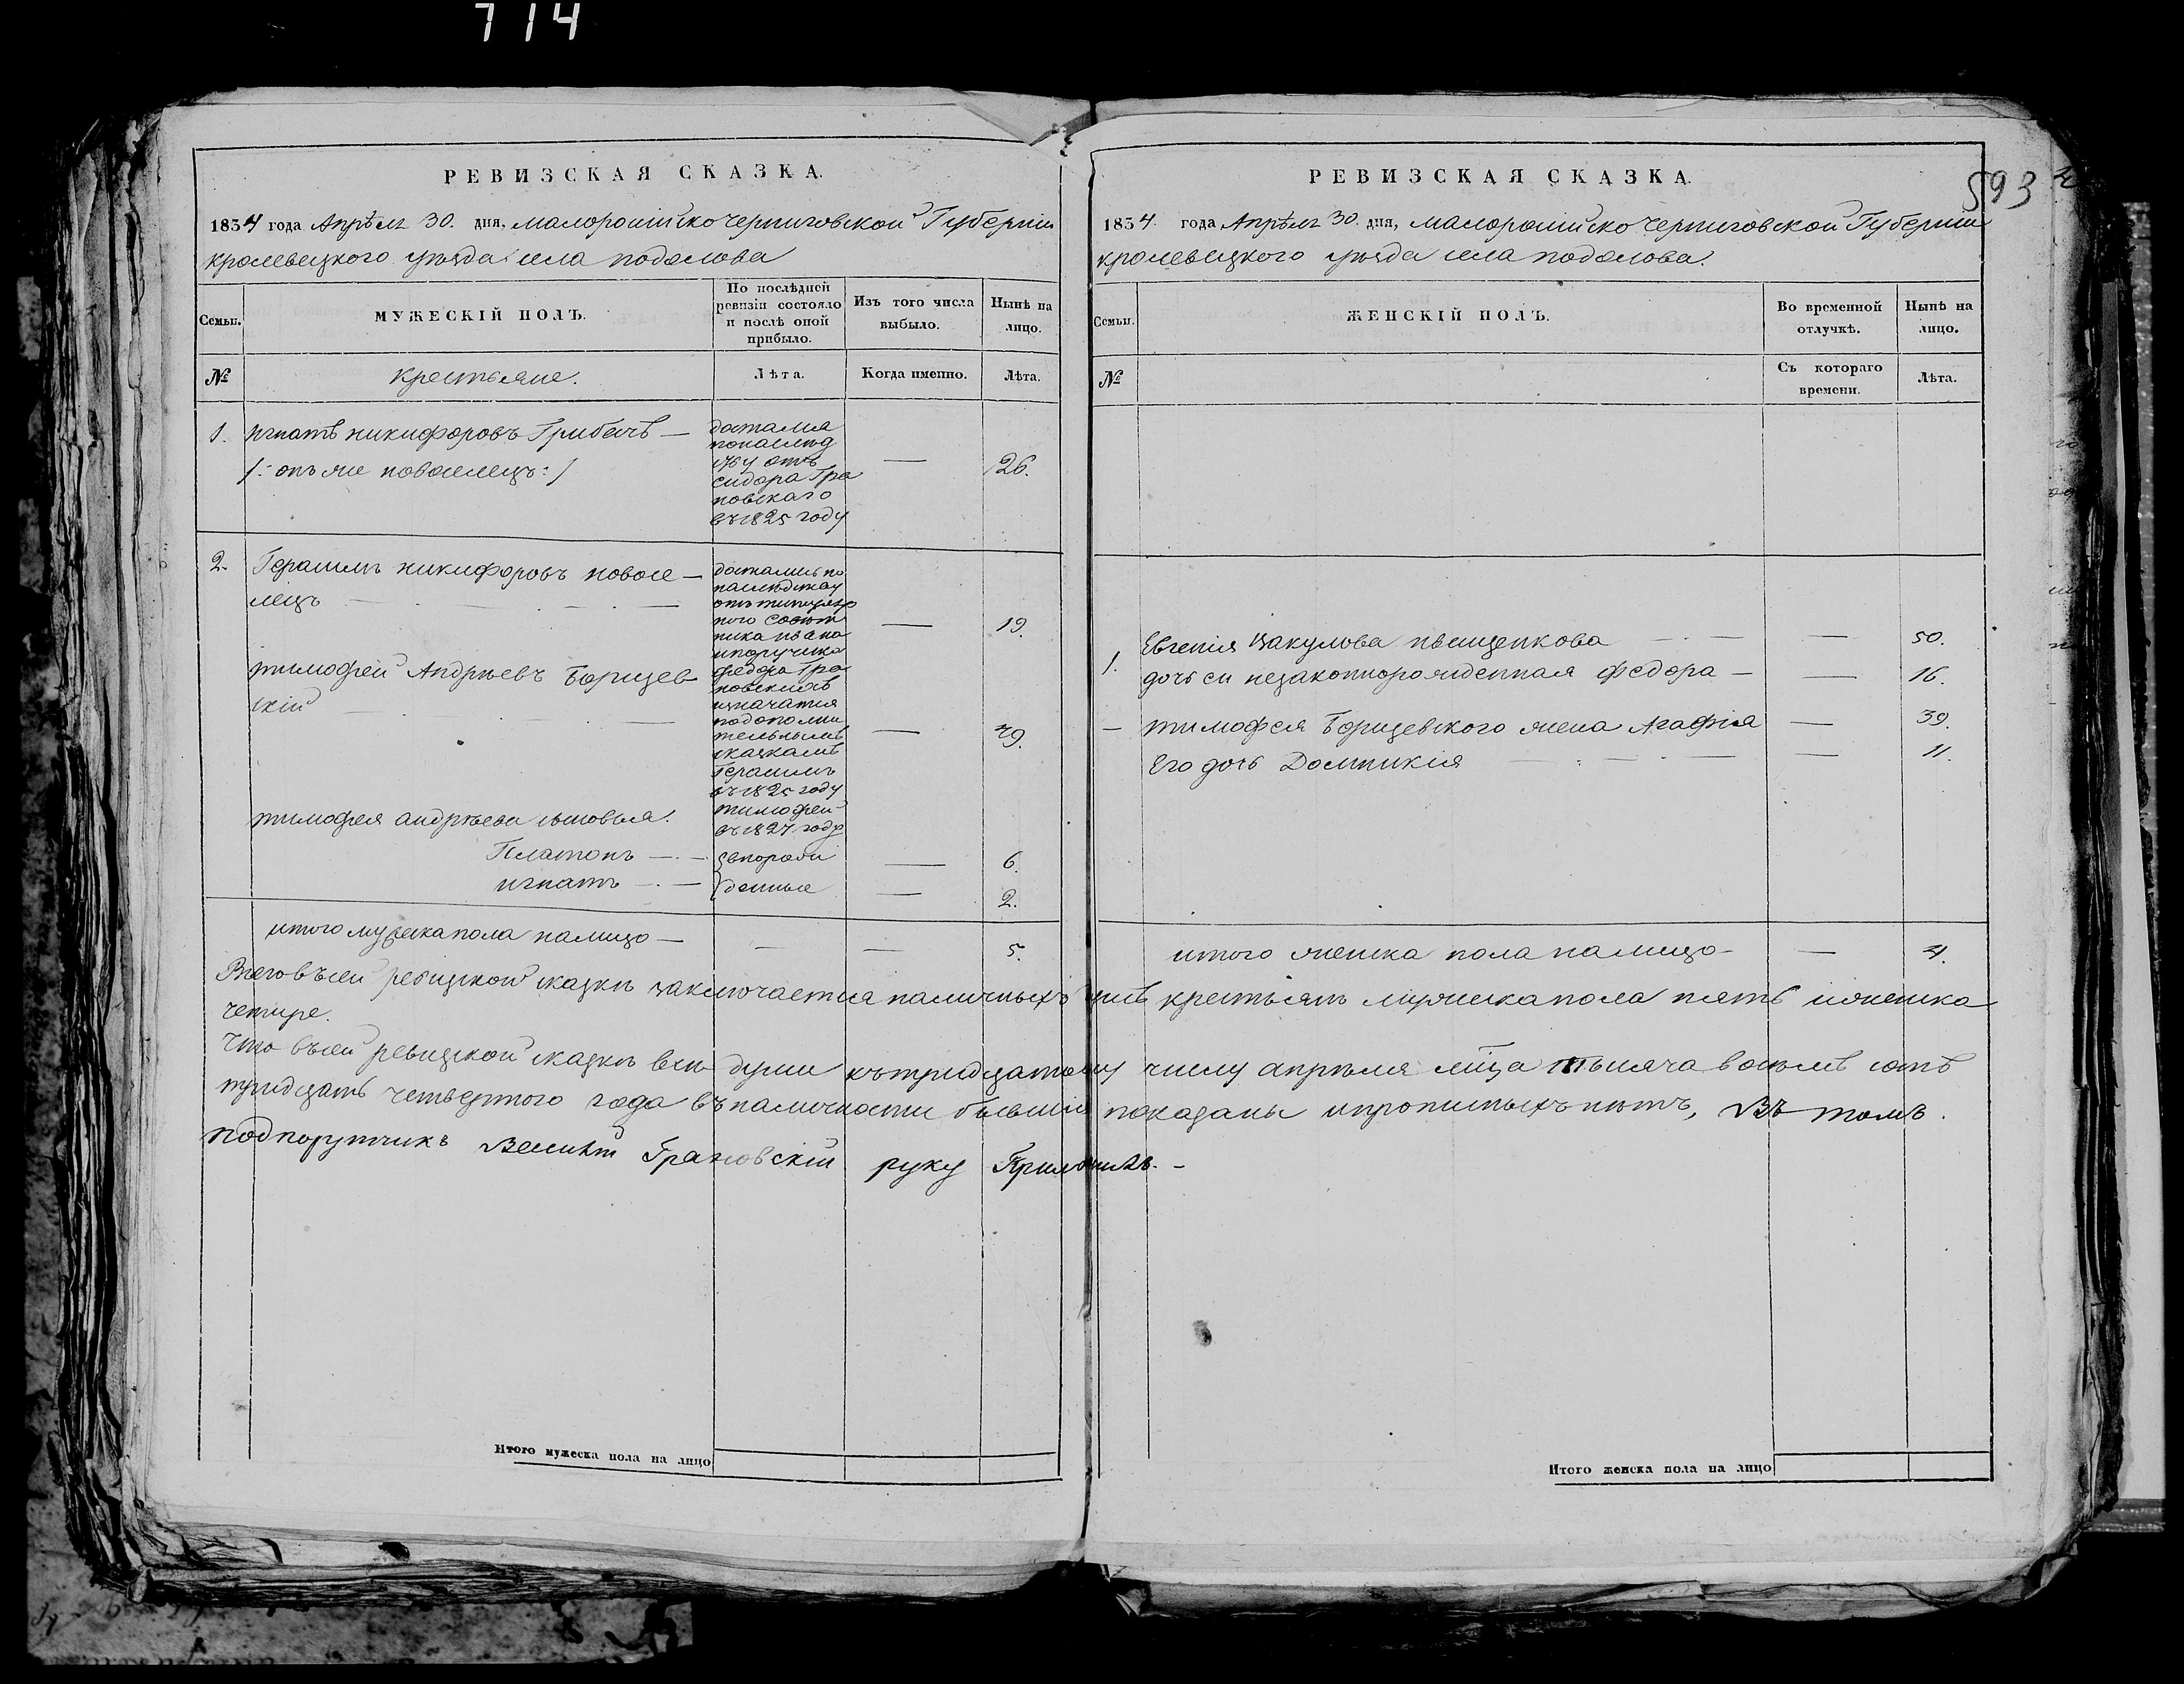 714
РЕВИЗСКАЯ СКАЗКА.
1834 года Апрѣля 30. дня, малоросійско Черниговской Губерніи
кролевецкого уѣзда села подолова
Семьи.
МУЖЕСКІЙ ПОЛЪ.
По послѣдней
ревизіи состояло
и послѣ оной
прибыло.
Изъ того числа
выбыло.
Нынѣ на
лицо.
№
крестьяне.
Лѣта.
Когда именно.
Лѣта.
1. игнатъ никифоровъ Грибачъ —
/: онъ же новоселецъ :/
достался
отъ
сидора Гра
новскаго
въ 1825 году
—
26.
2. Герасимъ никифоровъ новосе —
лецъ
достались по
наслѣдству
отъ титуляр
ного совѣт
ника ивана
ипоручика
федора Гра
новскихъ
изначатся
подополни
тельнымъ
сказкамъ
Герасимъ
въ 1825 году
тимофей
въ 1827 году
—
19.
тимофей Андрѣевъ Борщев
скій
—
49.
тимофея андрѣева сыновья.
Платонъ
игнатъ
внорож
денные
—
6.
—
2.
итого мужеска пола налицо —
—
—
5.
РЕВИЗСКАЯ СКАЗКА.
593
1834. года Апрѣля 30. дня, малоросійско Черниговской Губерніи
кролевецкого уѣзда села подолова.
Семьи.
ЖЕНСКІЙ ПОЛЪ.
Во временной
отлучкѣ.
Нынѣ на
лицо.
№
Съ котораго
времени.
Лѣта.
1. Евгенія вакулова иващенкова — 50.
дочь еи незаконнорожденная федора — — 16.
— тимофея Борщевского жена Агафія — 39.
Его дочь Домникія — 11.
итого женска пола налицо — — 4.
Всего въсей ревизской сказкѣ заключается наличныхъ душъ крестьянъ мужеска пола пять иженска
четире.
Что въсей ревизской сказкѣ всѣ души къ тридцатому числу апрѣля мца тысяча восемь сотъ
тридцать четвертого года въналичности бывшіе показаны ипрописныхъ нѣтъ, Въ томъ.
подпорутчикъ Грановскій руку Приложилъ. —
Итого мужеска пола на лицо
Итого женска пола на лицо